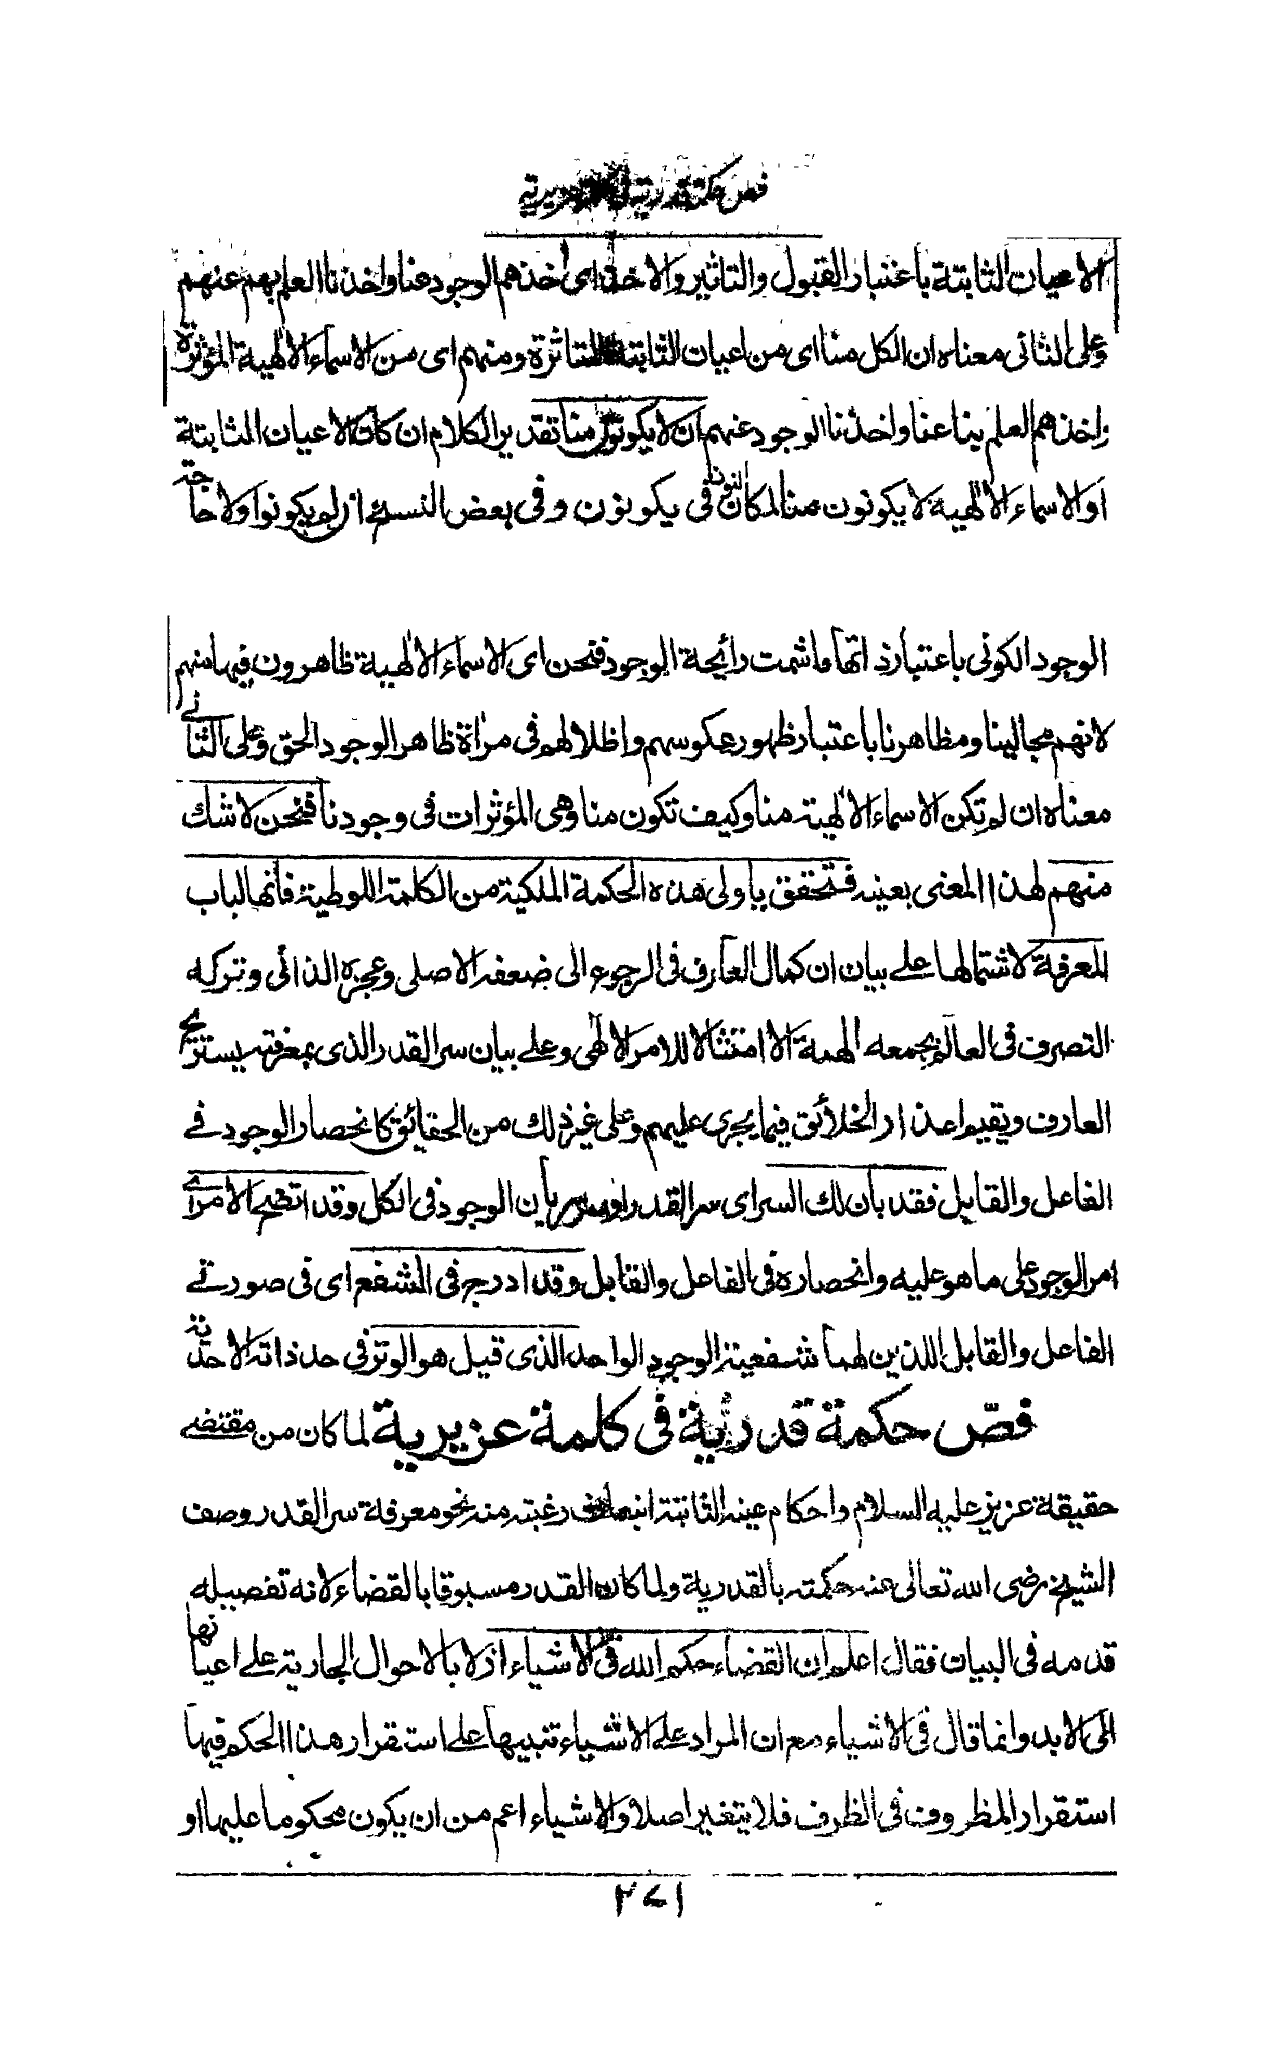 فص حكمة قدرية في كلمة عزيرية
الاعيان الثابتة باعتبار القبول والتاثير والاخذ اى أخذهم الوجود عنا واخذنا العلم بهم عنهم
وعلى الثانى معناه ان الكل منا اى من اعيان الثابتة المتاثرة ومنهم اى من الاسماء الالهية المؤثرة
واخذهم العلم بنا عنا واخذنا الوجود عنهم ان لا يكونون منا تقدير الكلام ان كان الاعيان الثابتة
او الاسماء الالهية لا يكونون منا لمكان النون فى يكونون وفى بعض النسخ ان لم يكونوا ولا حاجة
الوجود الكونى باعتبار ذاتها ما شمت رائحة الوجود فنحن اى الاسماء الالهية ظاهرون فيها منهم
لانهم مجالينا ومظاهرنا باعتبار ظهور عكوسهم واظلالهم فى مراة ظاهر الوجود الحق وعلى الثانى
معناه ان لم تكن الاسماء الالهية منا وكيف تكون منا وهى المؤثرات فى وجودنا فنحن لا شك
منهم لهذا المعنى بعينه فتحقق يا ولى هذه الحكمة الملكية من الكلمة اللوطية فانها لباب
المعرفة لاشتمالها على بيان ان كمال العارف فى الرجوع الى ضعفه الاصلى وعجزه الذاتى وتركه
التصرف فى العالم بجمعه الهمة الا امتثالا للامر الالهى وعلى بيان سر القدر الذى بمعرفته يستريح
العارف ويقيم اعذار الخلائق فيما يجرى عليهم وعلى غير ذلك من الحقائق كانحصار الوجود فى
الفاعل والقابل فقد بان لك السر اى سر القدر او سر سريان الوجود فى الكل وقد اتضح الامر اى
امر الوجود على ما هو عليه وانحصاره فى الفاعل والقابل وقد ادرج فى الشفع اى فى صورتى
الفاعل والقابل اللذين لهما شفعية الوجود الواحد الذى قيل هو الوتر فى حد ذاته الاحدية
فصّ حكمة قدرية فى كلمة عزيرية لما كان من مقتضى
حقيقة عزير عليه السلام واحكام عينه الثابتة انبعاث رغبته منه نحو معرفة سر القدر وصف
الشيخ رضى الله تعالى عنه حكمته بالقدرية ولما كان القدر مسبوقا بالقضاء لانه تفصيله
قدمه فى البيان فقال اعلم ان القضاء حكم الله فى الاشياء ازلا بالاحوال الجارية على اعيانها
الى الابد وانما قال فى الاشياء مع ان المراد على الاشياء تنبيها على استقرار هذا الحكم فيها
استقرار المظروف فى الظرف فلا يتغير اصلا والاشياء اعم من ان يكون محكوما عليها او
٢٧١